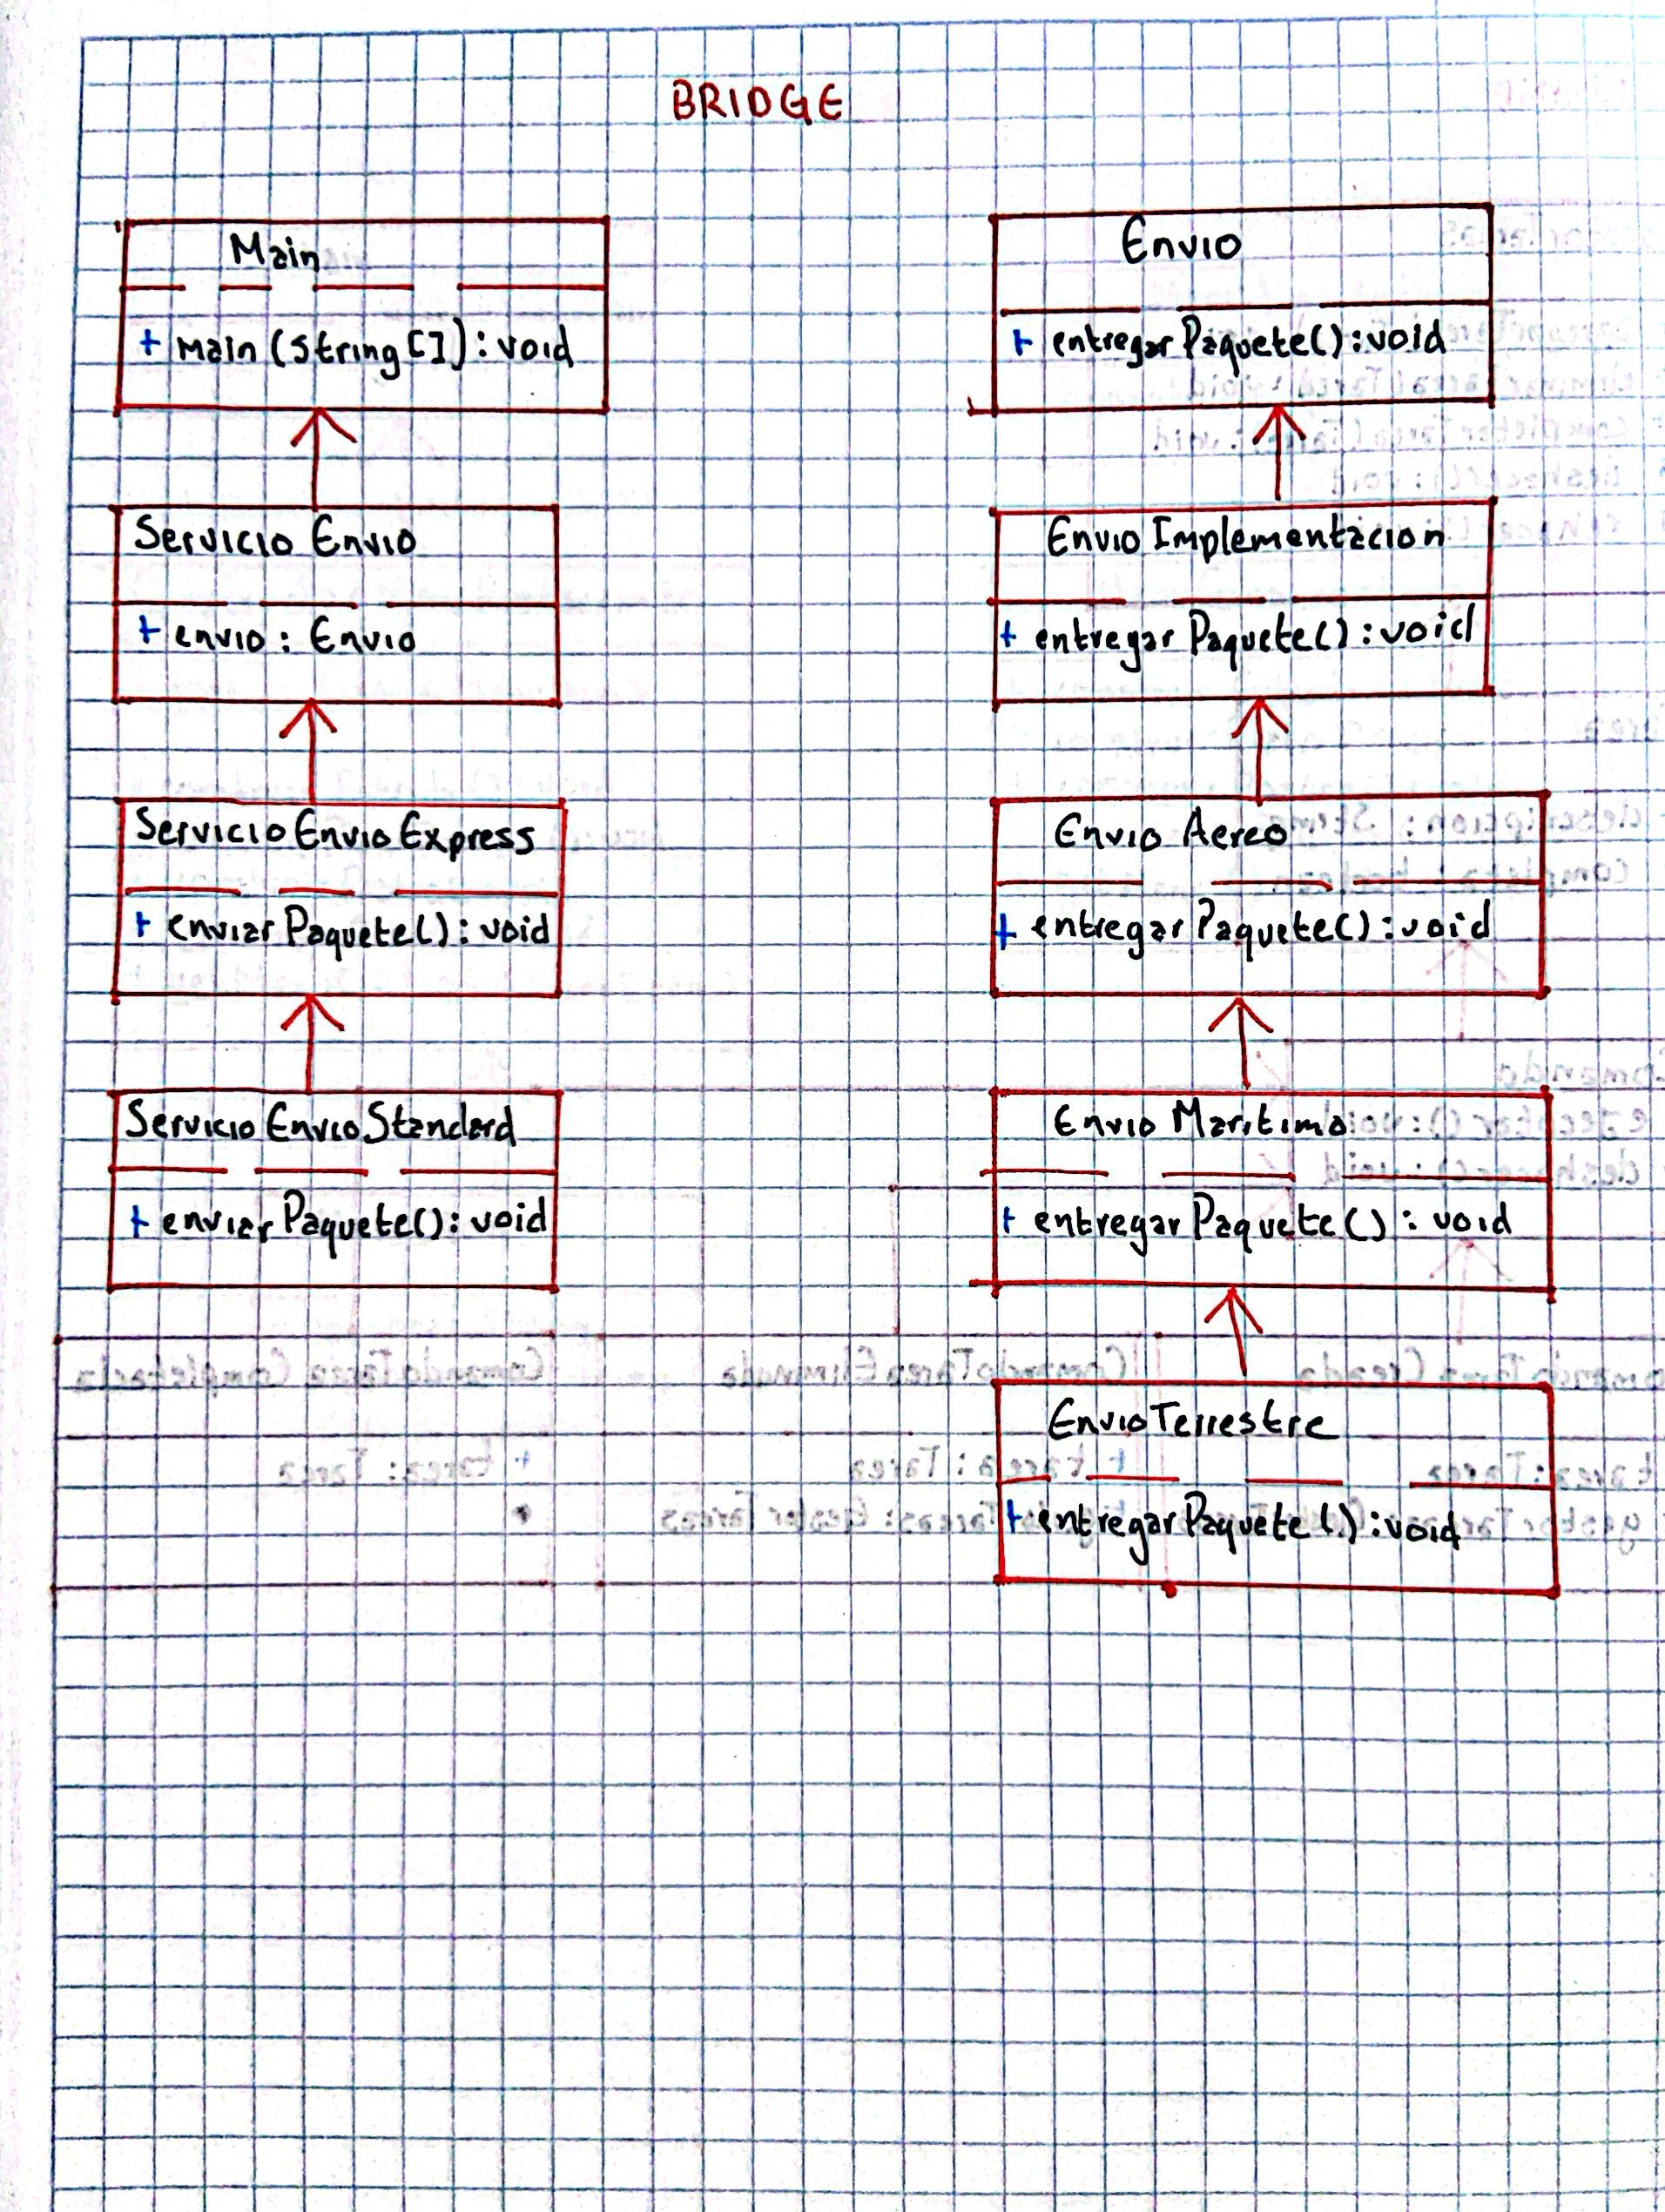 BRIDGE
Main
+ main (String []) : void
Servicio Envio
+ envio : Envio
Servicio Envio Express
+ enviar Paquete() : void
Servicio Envio Standard
+ enviar Paquete() : void
Envio
+ entregar Paquete() : void
Envio Implementacion
+ entregar Paquete() : void
Envio Aereo
+ entregar Paquete() : void
Envio Maritimo
+ entregar Paquete() : void
Envio Terrestre
+ entregar Paquete() : void